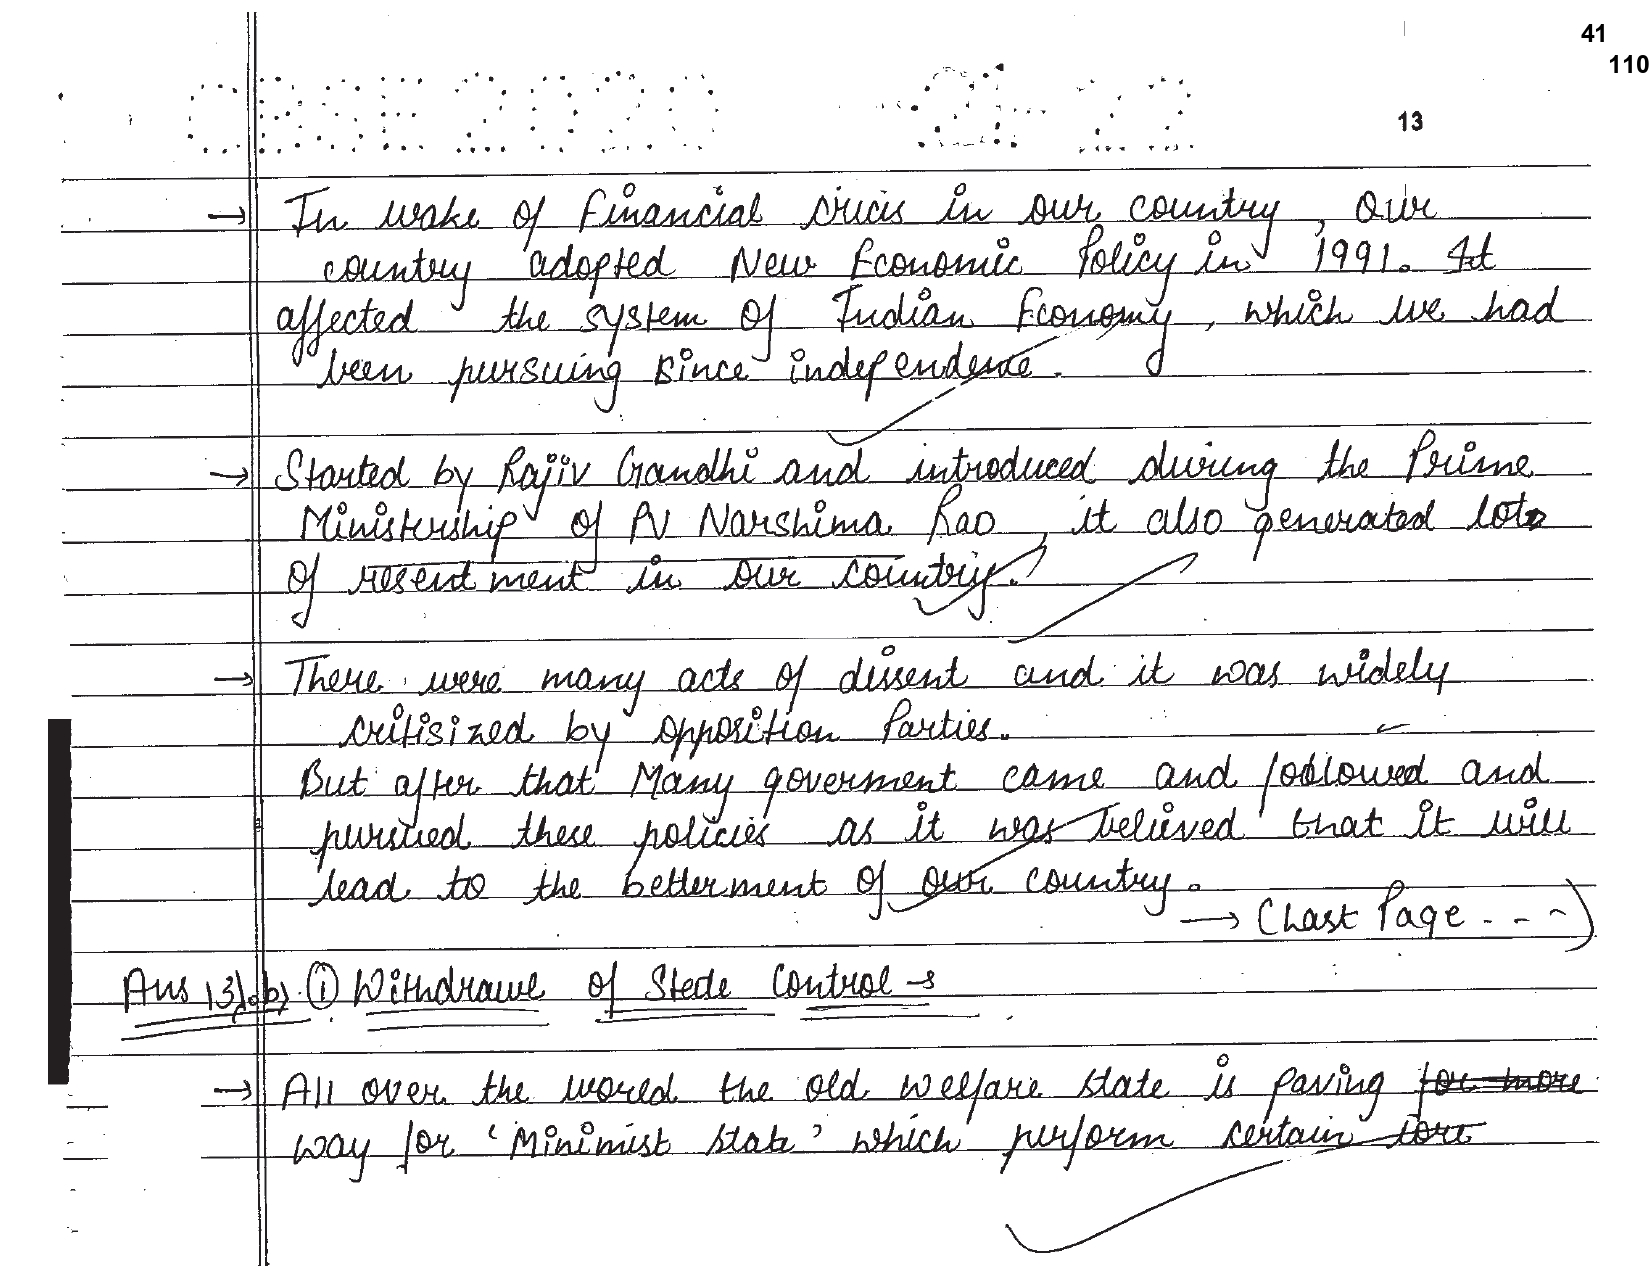 41
110
CBSE 2020 22
13
→ In wake of financial cricis in our country, our
country adopted New Economic Policy in 1991. It
affected the system of Indian Economy, which we had
been pursuing since independence.
→ Started by Rajiv Gandhi and introduced during the Prime
Ministership of PV Narshima Rao, it also generated lots
of resentment in our country.
→ There were many acts of dissent and it was widely
critisized by opposition Parties.
But after that Many goverment came and followed and
pursued these policies as it was believed that it will
lead to the betterment of our country.
→ (Last Page - - -)
Ans 13).b) (i) Withdrawe of Stede Control →
→ All over the world the old welfare state is paving for more
way for 'Minimist state' which perform certain